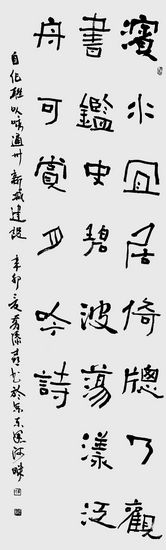 濱水宜居倚牕乃觀
書鑑史碧波蕩漾泛
舟可賞月吟詩
自作联吟咏通州新城建設 辛卯夏於京東運河畔